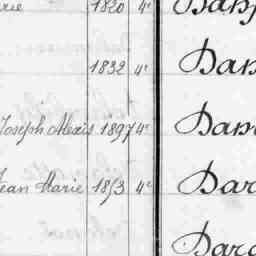 rie 1820 4e
1832 4e Dan
Joseph Alexis 1897 4e Dan
Jean Marie 1813 4e Dar
Dar